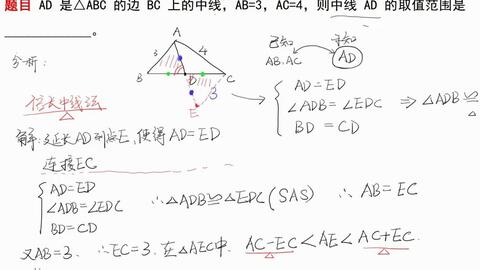 题目 AD 是△ABC 的边 BC 上的中线，AB=3，AC=4，则中线 AD 的取值范围是
____________。
分析：
A
3
4
B
D
C
3
E
已知
AB.AC
未知
AD
AD=ED
∠ADB=∠EDC
BD=CD
⇒△ADB≌
△
倍长中线法
解：延长AD到点E，使得AD=ED
连接EC
AD=ED
∠ADB=∠EDC
BD=CD
∴△ADB≌△EDC(SAS) ∴ AB=EC
又AB=3. ∴EC=3. 在△AEC中. AC-EC<AE<AC+EC.